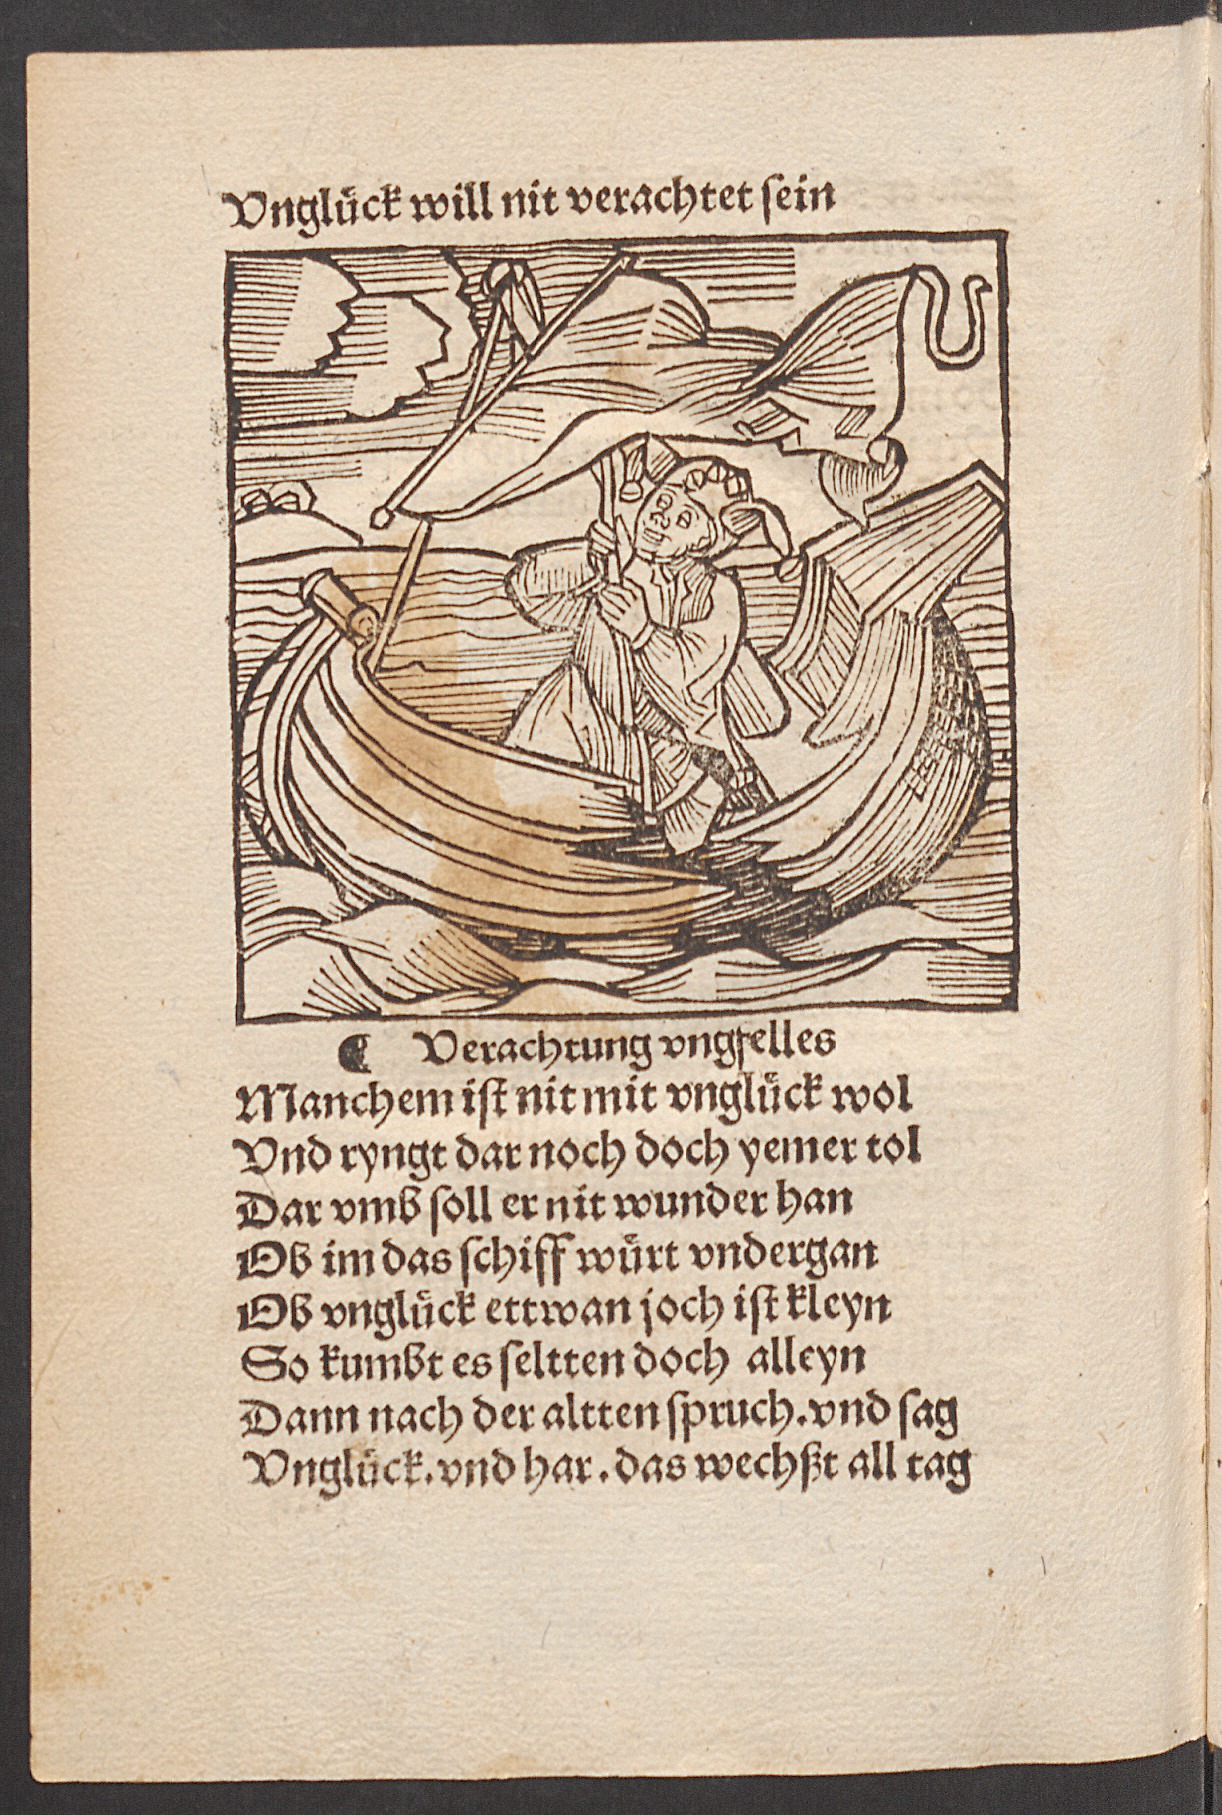 Vnglück will nit verachtet sein
Verachtung vngfelles
Manchem ist nit mit vnglück wol
Vnd ryngt dar noch doch yemer tol
Dar vmb soll er nit wunder han
Ob im das schiff würt vndergan
Ob vnglück ettwan joch ist kleyn
So kumbt es seltten doch alleyn
Dann nach der altten spruch. vnd sag
Vnglück. vnd har. das wechßt all tag